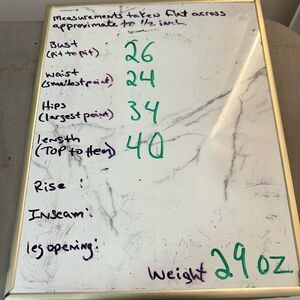 measurements taken flat across
approximate to 1/2 inch
Bust
(pit to pit) 26
waist
(smallest point) 24
Hips
(largest point) 34
length
(TOP to Hem) 40
Rise:
Inseam:
leg opening:
weight 29 oz